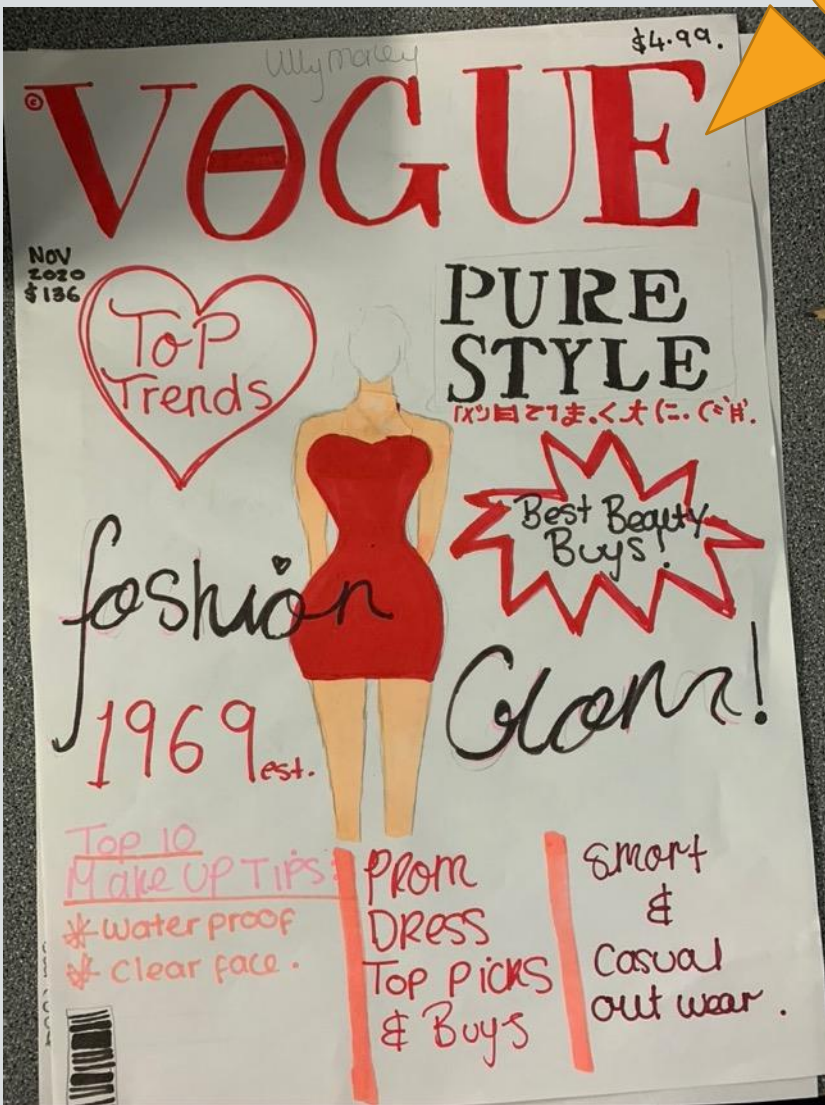 $4.99.
©
VOGUE
NOV
2020
$136
Top
Trends
PURE
STYLE
Best Beauty
Buys!
fashion
Glam!
1969 est.
Top 10
Make UP TIPS:
* Water proof
* Clear face.
PROM
DRESS
Top Picks
& Buys
Smart
&
Casual
out wear.